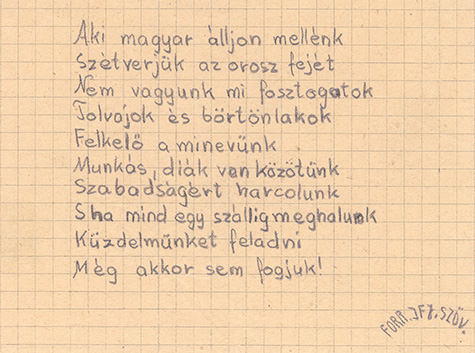 Aki magyar álljon mellénk
Szétverjük az orosz fejét
Nem vagyunk mi fosztogatok
Tolvajok és börtönlakok
Felkelő a minevünk
Munkás, diák van közötünk
Szabadságért harcolunk
S ha mind egy szállig meghalunk
Küzdelmünket feladni
Még akkor sem fogjuk!
FORR. IFJ. SZÖV.